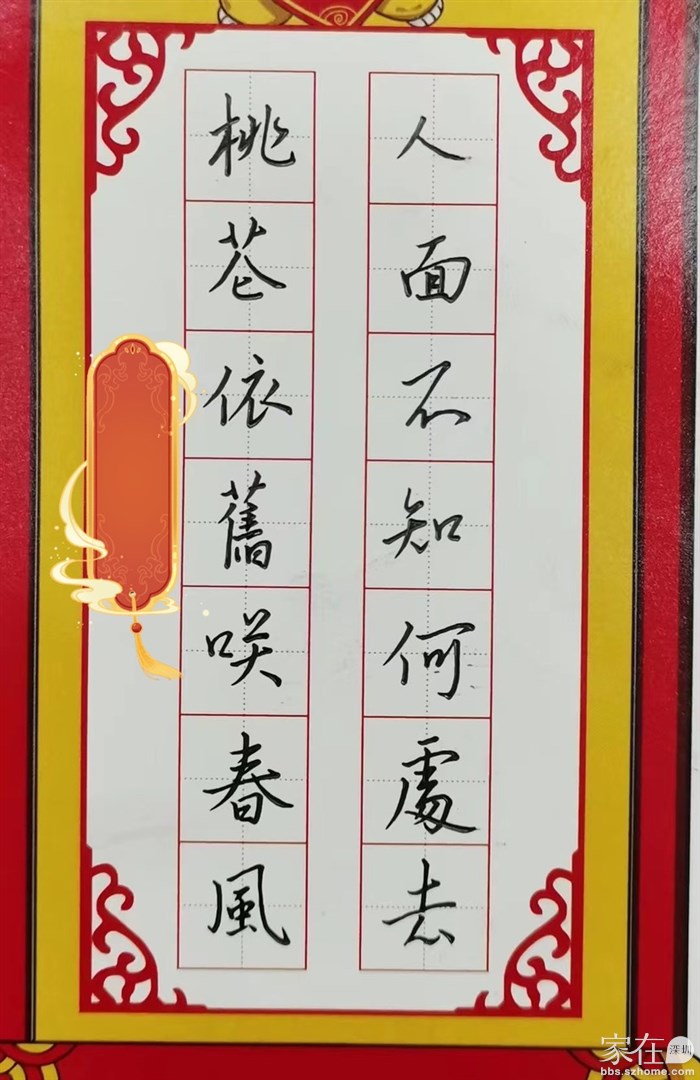 人面不知何處去
桃花依舊咲春風
家在深圳
bbs.szhome.com